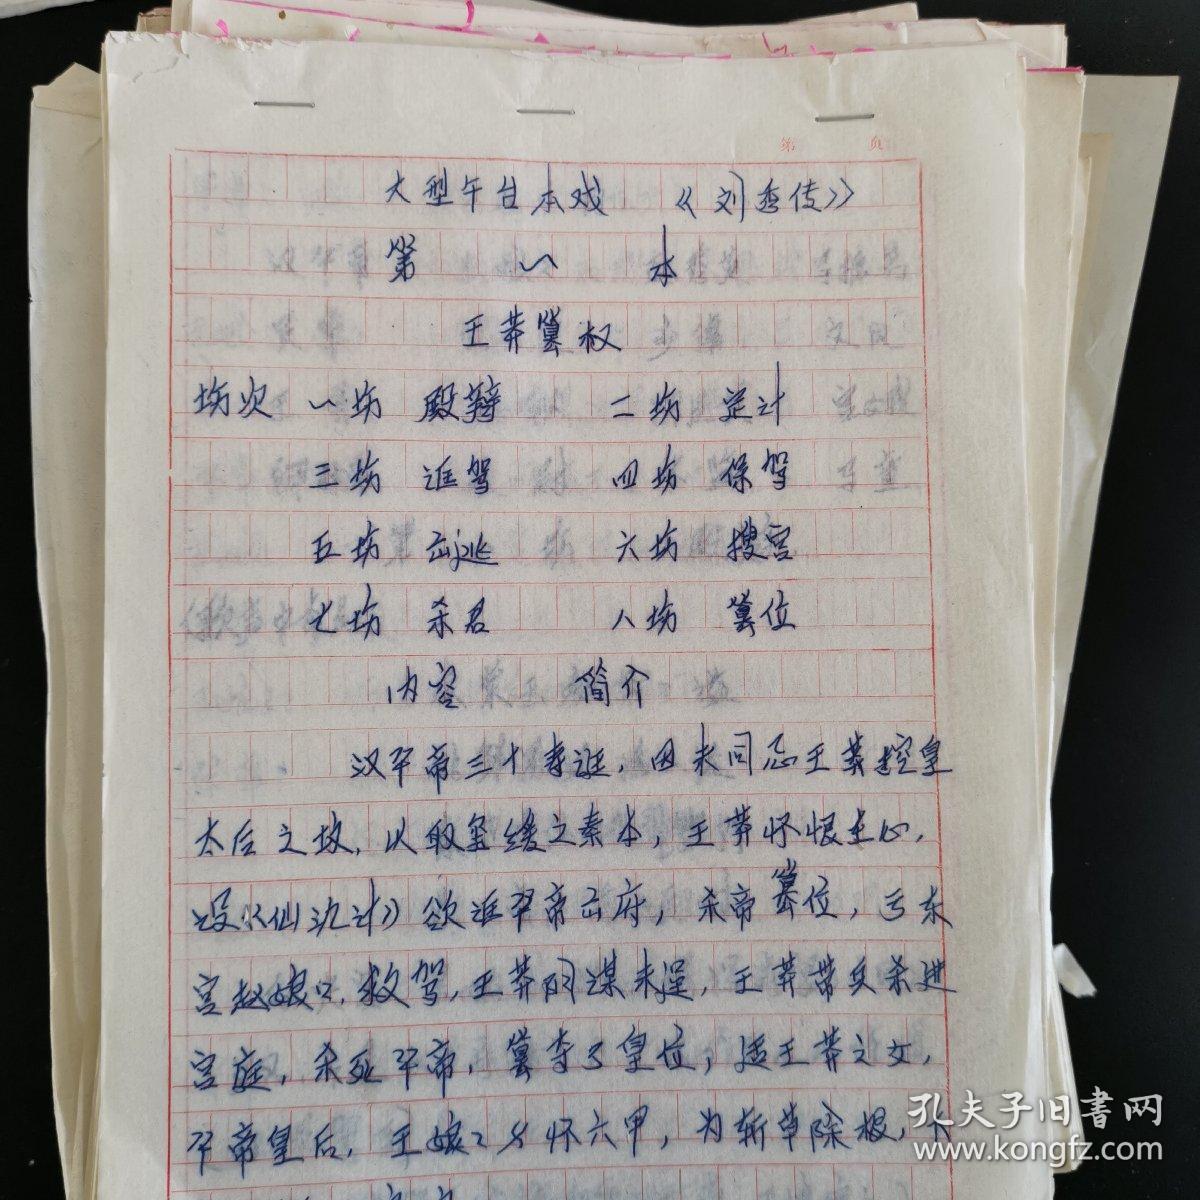 第 页
大型午台本戏 《刘秀传》
第 一 本
王莽篡权
场次 一场 殿辩 二场 定计
三场 诓驾 四场 保驾
五场 出逃 六场 搜宫
七场 杀君 八场 篡位
内容 简介
汉平帝三十寿诞，因未同意王莽挖皇
太后之坟，以取玺绶之奏本，王莽怀恨在心，
设《仙氿计》欲诓平帝出府，杀帝篡位，亏东
宫赵娘〻救驾，王莽阴谋未逞，王莽带兵杀进
宫庭，杀死平帝，篡夺了皇位，适王莽之女，
平帝皇后，王娘〻身怀六甲，为斩草除根，
孔夫子旧书网
www.kongfz.com